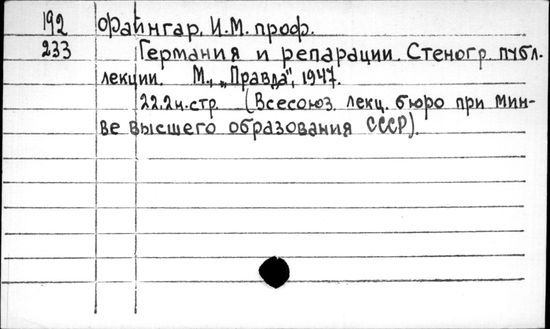 192 Файнгар, И.М. проф.
233 Германия и репарации. Стеногр. публ.
лекции. М., „Правда", 1947.
22.2н.стр. (Всесоюз. лекц. бюро при Мин-
ве высшего образования СССР).